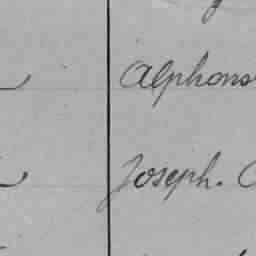 Alphons
Joseph.